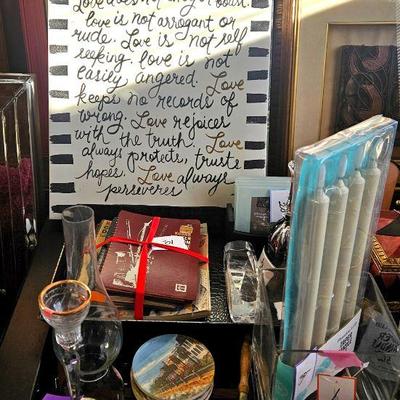 Love does not envy or boast.
love is not arrogant or
rude. Love is not self
seeking. love is not
easily angered. Love
keeps no records of
wrong. Love rejoices
with the truth. Love
always protects, trusts
hopes. Love always
perseveres